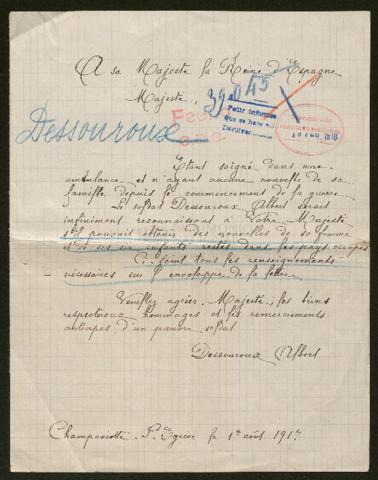 A sa Majesté la Reine d'Espagne
Majesté.
39.045
Dessouroux
Pelit informes
que se hace
Devolver
1918
Etant soigné dans une
ambulance et n'ayant aucune nouvelle de sa
famille depuis le commencement de la guerre
Le soldat Dessouroux Albert serait
infiniment reconnaissant à Votre Majesté
s'il pouvait obtenir des nouvelles de sa femme
et de ses six enfants restés dans les pays occupés
Ci-joint tous les renseignements
nécessaires sur l'enveloppe de la lettre.
Veuillez agréer, Majesté, les biens
respectueux hommages et les remerciements
anticipés d'un pauvre soldat
Dessouroux Albert
le 1er août 1917